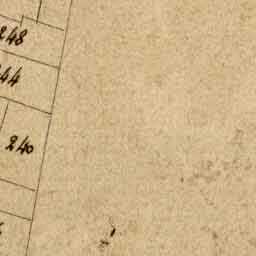 248
44
240